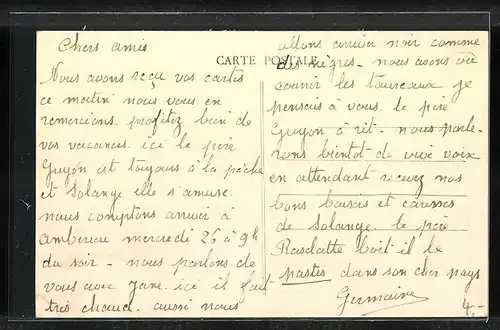 CARTE POSTALE
Chers amis
Nous avons reçu vos cartes
ce matin nous vous en
remercions. profitez bien de
vos vacances. ici le père
Guyon est toujours à la pêche
et Solange elle s'amuse.
nous comptons arriver à
Amberieu mercredi 26 à 9h
du soir - nous parlons de
vous avec Jane. ici il fait
très chaud. aussi nous
allons arriver noir comme
des nègres - nous avons vu
courrir les taureaux je
pensais à vous. le père
Guyon a rit - nous parle-
rons bientot de vive voix
en attendant recevez nos
bons baisers et caresses
de Solange. le père
boit il le
pastis dans son cher pays
Germaine
4.-